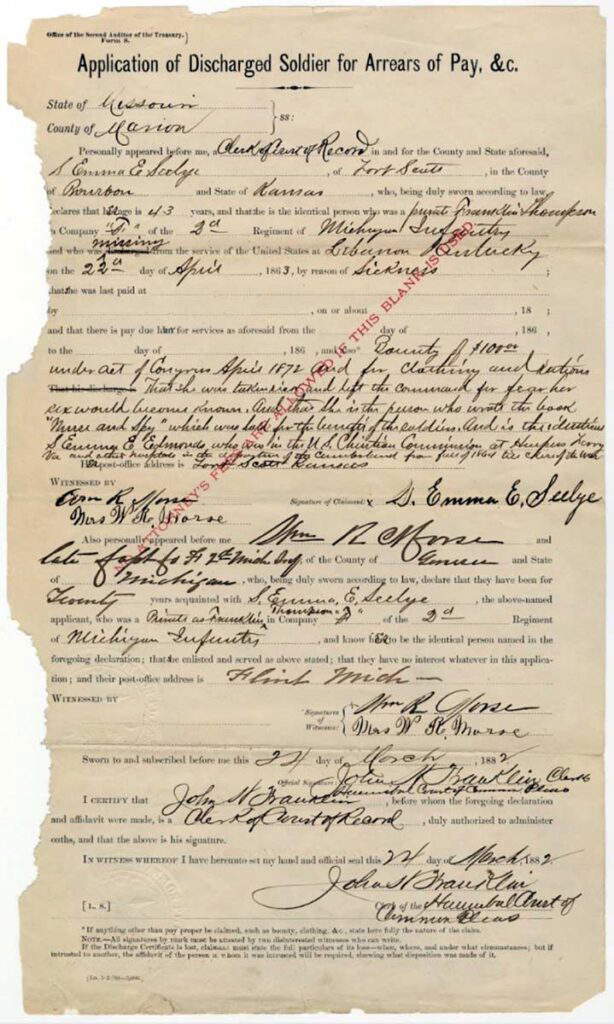 Office of the Second Auditor of the Treasury.
Form 8.
Application of Discharged Soldier for Arrears of Pay, &c.
State of Missouri
County of Marion
ss:
Personally appeared before me, a Clerk of Court of Record in and for the County and State aforesaid,
S Emma E Seelye, of Fort Scott, in the County
of Bourbon and State of Kansas, who, being duly sworn according to law,
declares that her age is 43 years, and that she is the identical person who was a private Franklin Thompson
Company "F" of the 2d Regiment of Michigan Infantry
missing
and who was from the service of the United States at Lebanon Kentucky
on the 22nd day of April, 1863, by reason of Sickness;
that she was last paid at
by, on or about, 18 ;
and that there is pay due her for services as aforesaid from the day of, 186 ,
to the day of, 186 , and also* Bounty of $100.00
under act of Congress April 1872 and for clothing and rations
That his discharge is That she was taken sick and left the command for fear her
sex would become known. And that she is the person who wrote the book
"Nurse and Spy" which was sold for the benefit of the soldiers. And is the identical
S. Emma E Edmonds, who was in the U.S. Christian Commission at Harpers Ferry
Va and other hospitals in the department of the Cumberland from of 1864 till close of the war
Her post-office address is Fort Scott Kansas
NO ATTORNEY'S FEES ARE ALLOWED IF THIS BLANK IS USED
WITNESSED BY
Wm R Morse
Mrs W. R. Morse
Signature of Claimant: x S. Emma E. Seelye
Also personally appeared before me Wm R Morse and
late Capt Co F 2d Mich Inf. of the County of Genesee and State
of Michigan, who, being duly sworn according to law, declare that they have been for
Twenty years acquainted with S. Emma E. Seelye, the above-named
applicant, who was a Private as Franklin Thompson in Company "F" of the 2d Regiment
of Michigan Infantry, and know her to be the identical person named in the
foregoing declaration; that she enlisted and served as above stated; that they have no interest whatever in this applica-
tion; and their post-office address is Flint Mich
WITNESSED BY
Signatures of Witnesses:
Wm R Morse
Mrs W. R. Morse
Sworn to and subscribed before me this 24 day of March, 1882
Official Signature: John N Franklin Clerk
Hannibal Court of Common Pleas
I CERTIFY that John N Franklin, before whom the foregoing declaration
and affidavit were made, is a Clerk of Court of Record, duly authorized to administer
oaths, and that the above is his signature.
IN WITNESS WHEREOF I have hereunto set my hand and official seal this 24 day of March, 1882
John N Franklin
[L. S.]
Clerk of the Hannibal Court of
Common Pleas
* If anything other than pay proper be claimed, such as bounty, clothing, &c., state here fully the nature of the claim.
NOTE.—All signatures by mark must be attested by two disinterested witnesses who can write.
If the Discharge Certificate is lost, claimant must state the full particulars of its loss—when, where, and under what circumstances; but if
intrusted to another, the affidavit of the person to whom it was intrusted will be required, showing what disposition was made of it.